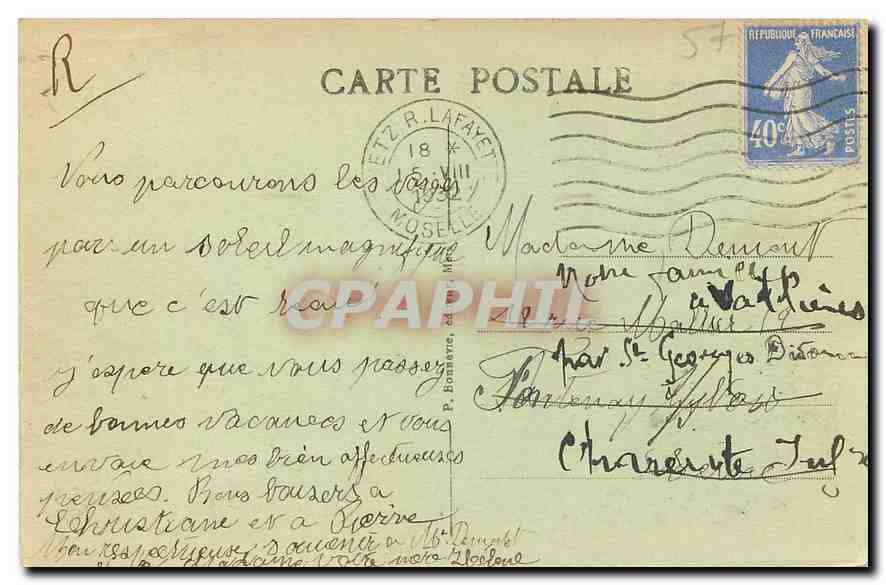 R
57
CARTE POSTALE
REPUBLIQUE FRANÇAISE
40c
POSTES
METZ R. LAFAYETTE
18 *
15 VIII
1932
MOSELLE
Vous parcourons les vosges
par un soleil magnifique
que c'est beau
j'espère que vous passez
de bonnes vacances et vous
envoie mes bien affectueuses
pensées. Bons baisers à
Christiane et à Pierre
Mon respectueux souvenir à Mr Demont
votre Hélène
P. Bonnevie, éd
CPAPHIL
Madame Demont
Notre famille
à
18 rue
par St Georges Didonne
Fontenay s/s Bois
Charente Inf